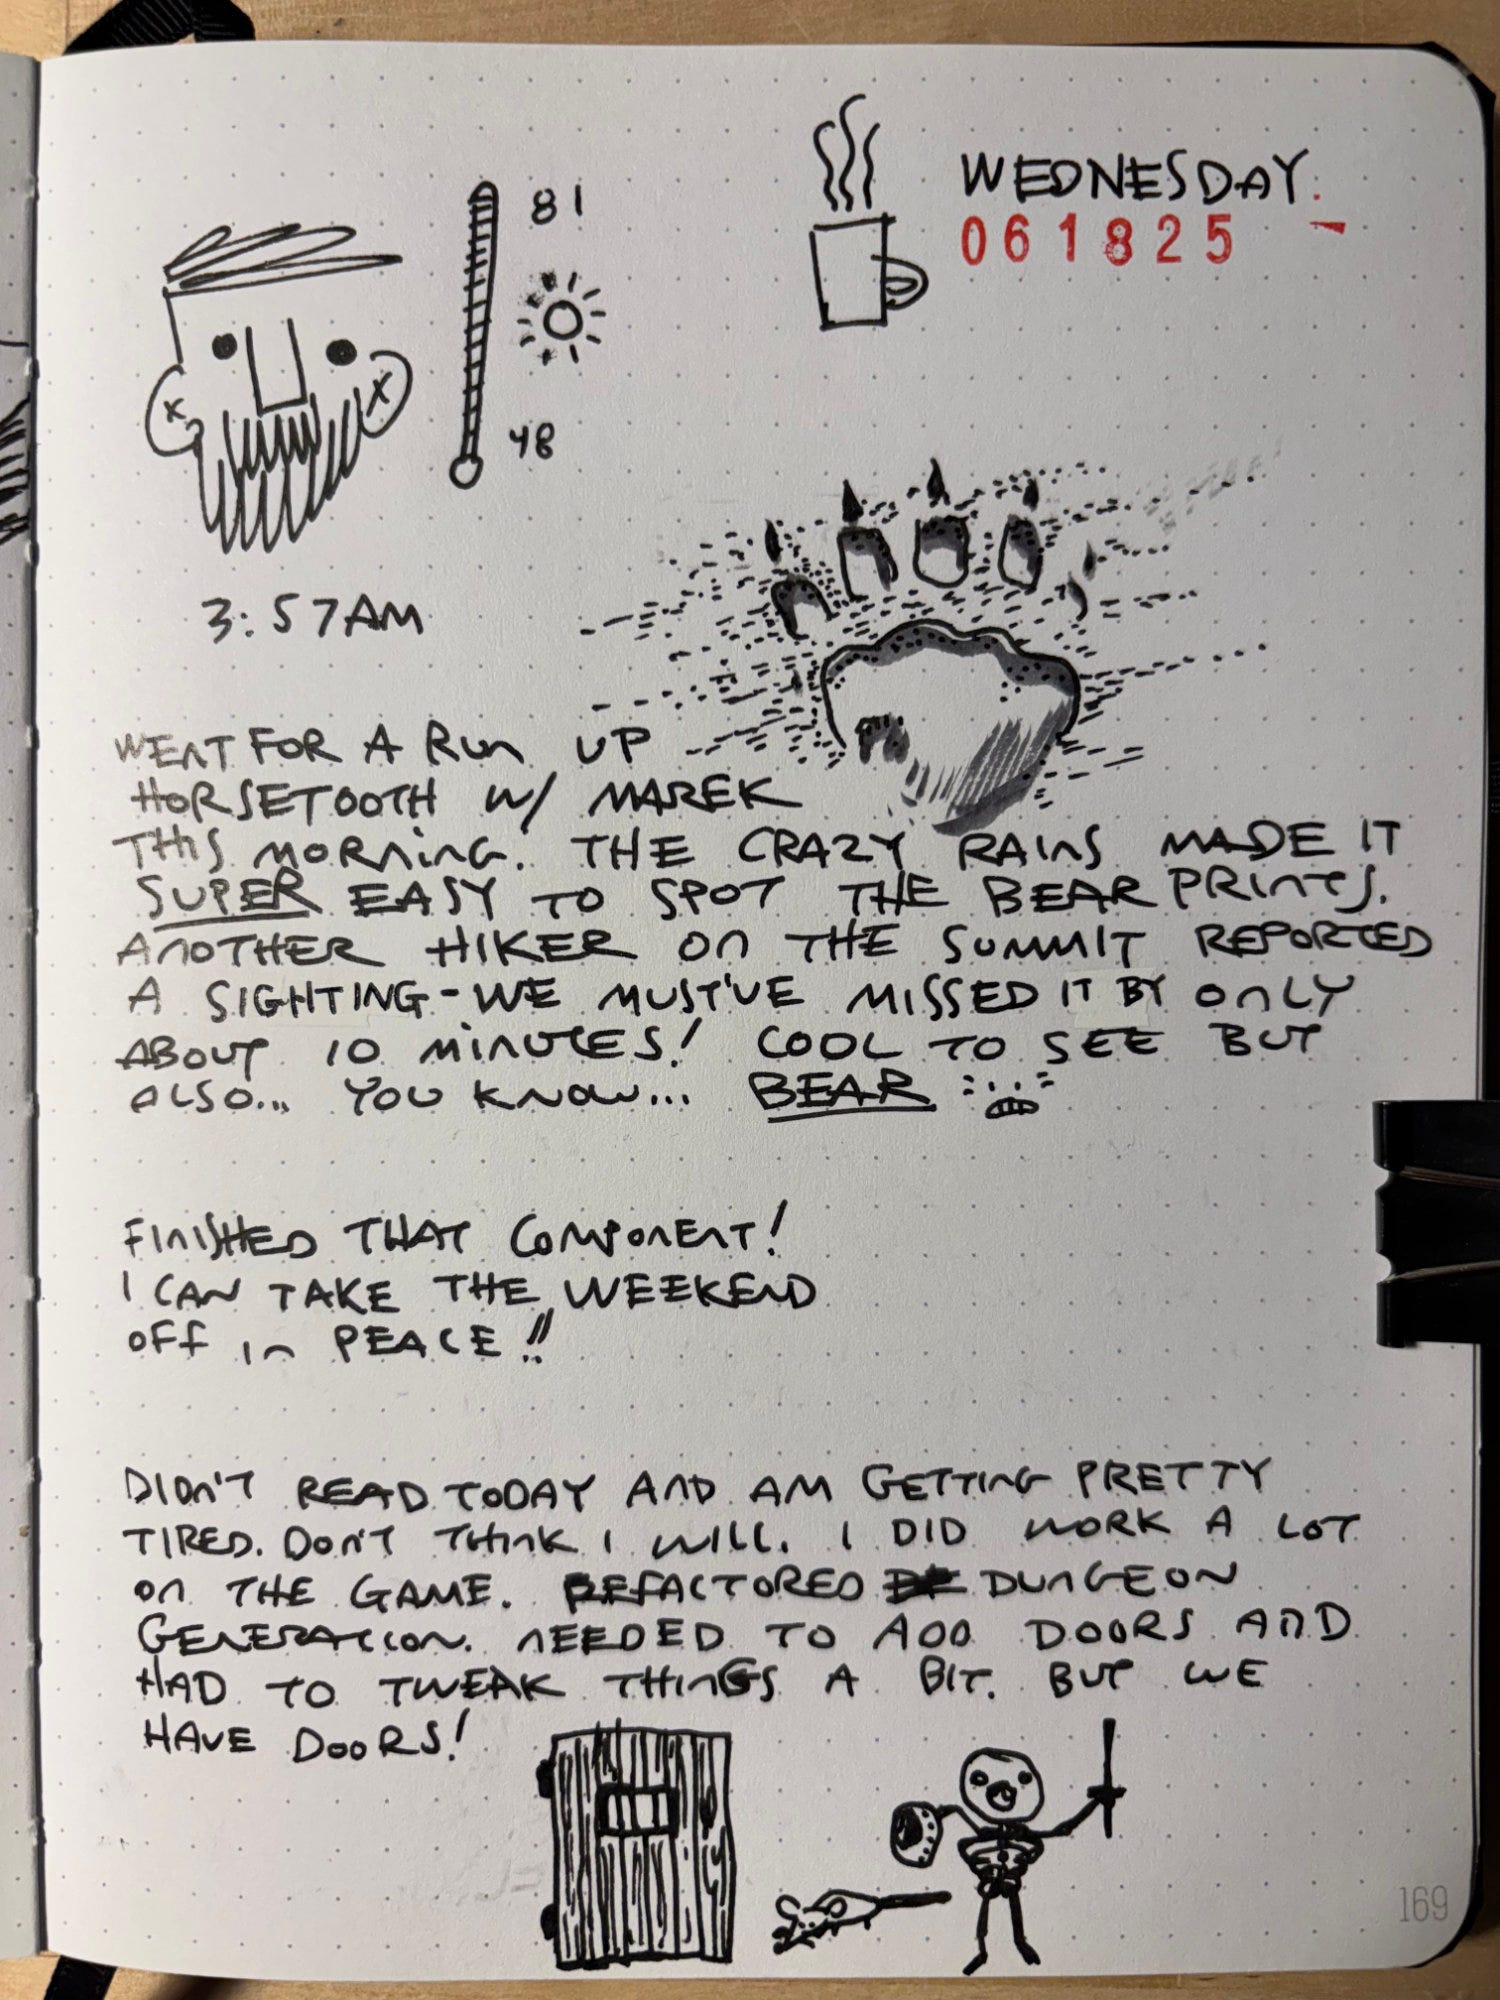 WEDNESDAY.
061825 -
81
48
3:57AM
WENT FOR A RUN UP
HORSETOOTH W/ MAREK
THIS MORNING. THE CRAZY RAINS MADE IT
SUPER EASY TO SPOT THE BEAR PRINTS.
ANOTHER HIKER ON THE SUMMIT REPORTED
A SIGHTING - WE MUST'VE MISSED IT BY ONLY
ABOUT 10 MINUTES! COOL TO SEE BUT
ALSO... YOU KNOW... BEAR
FINISHED THAT COMPONENT!
I CAN TAKE THE WEEKEND
OFF IN PEACE!!
DIDN'T READ TODAY AND AM GETTING PRETTY
TIRED. DON'T THINK I WILL. I DID WORK A LOT
ON THE GAME. REFACTORED DUNGEON
GENERATION. NEEDED TO ADD DOORS AND
HAD TO TWEAK THINGS A BIT. BUT WE
HAVE DOORS!
169